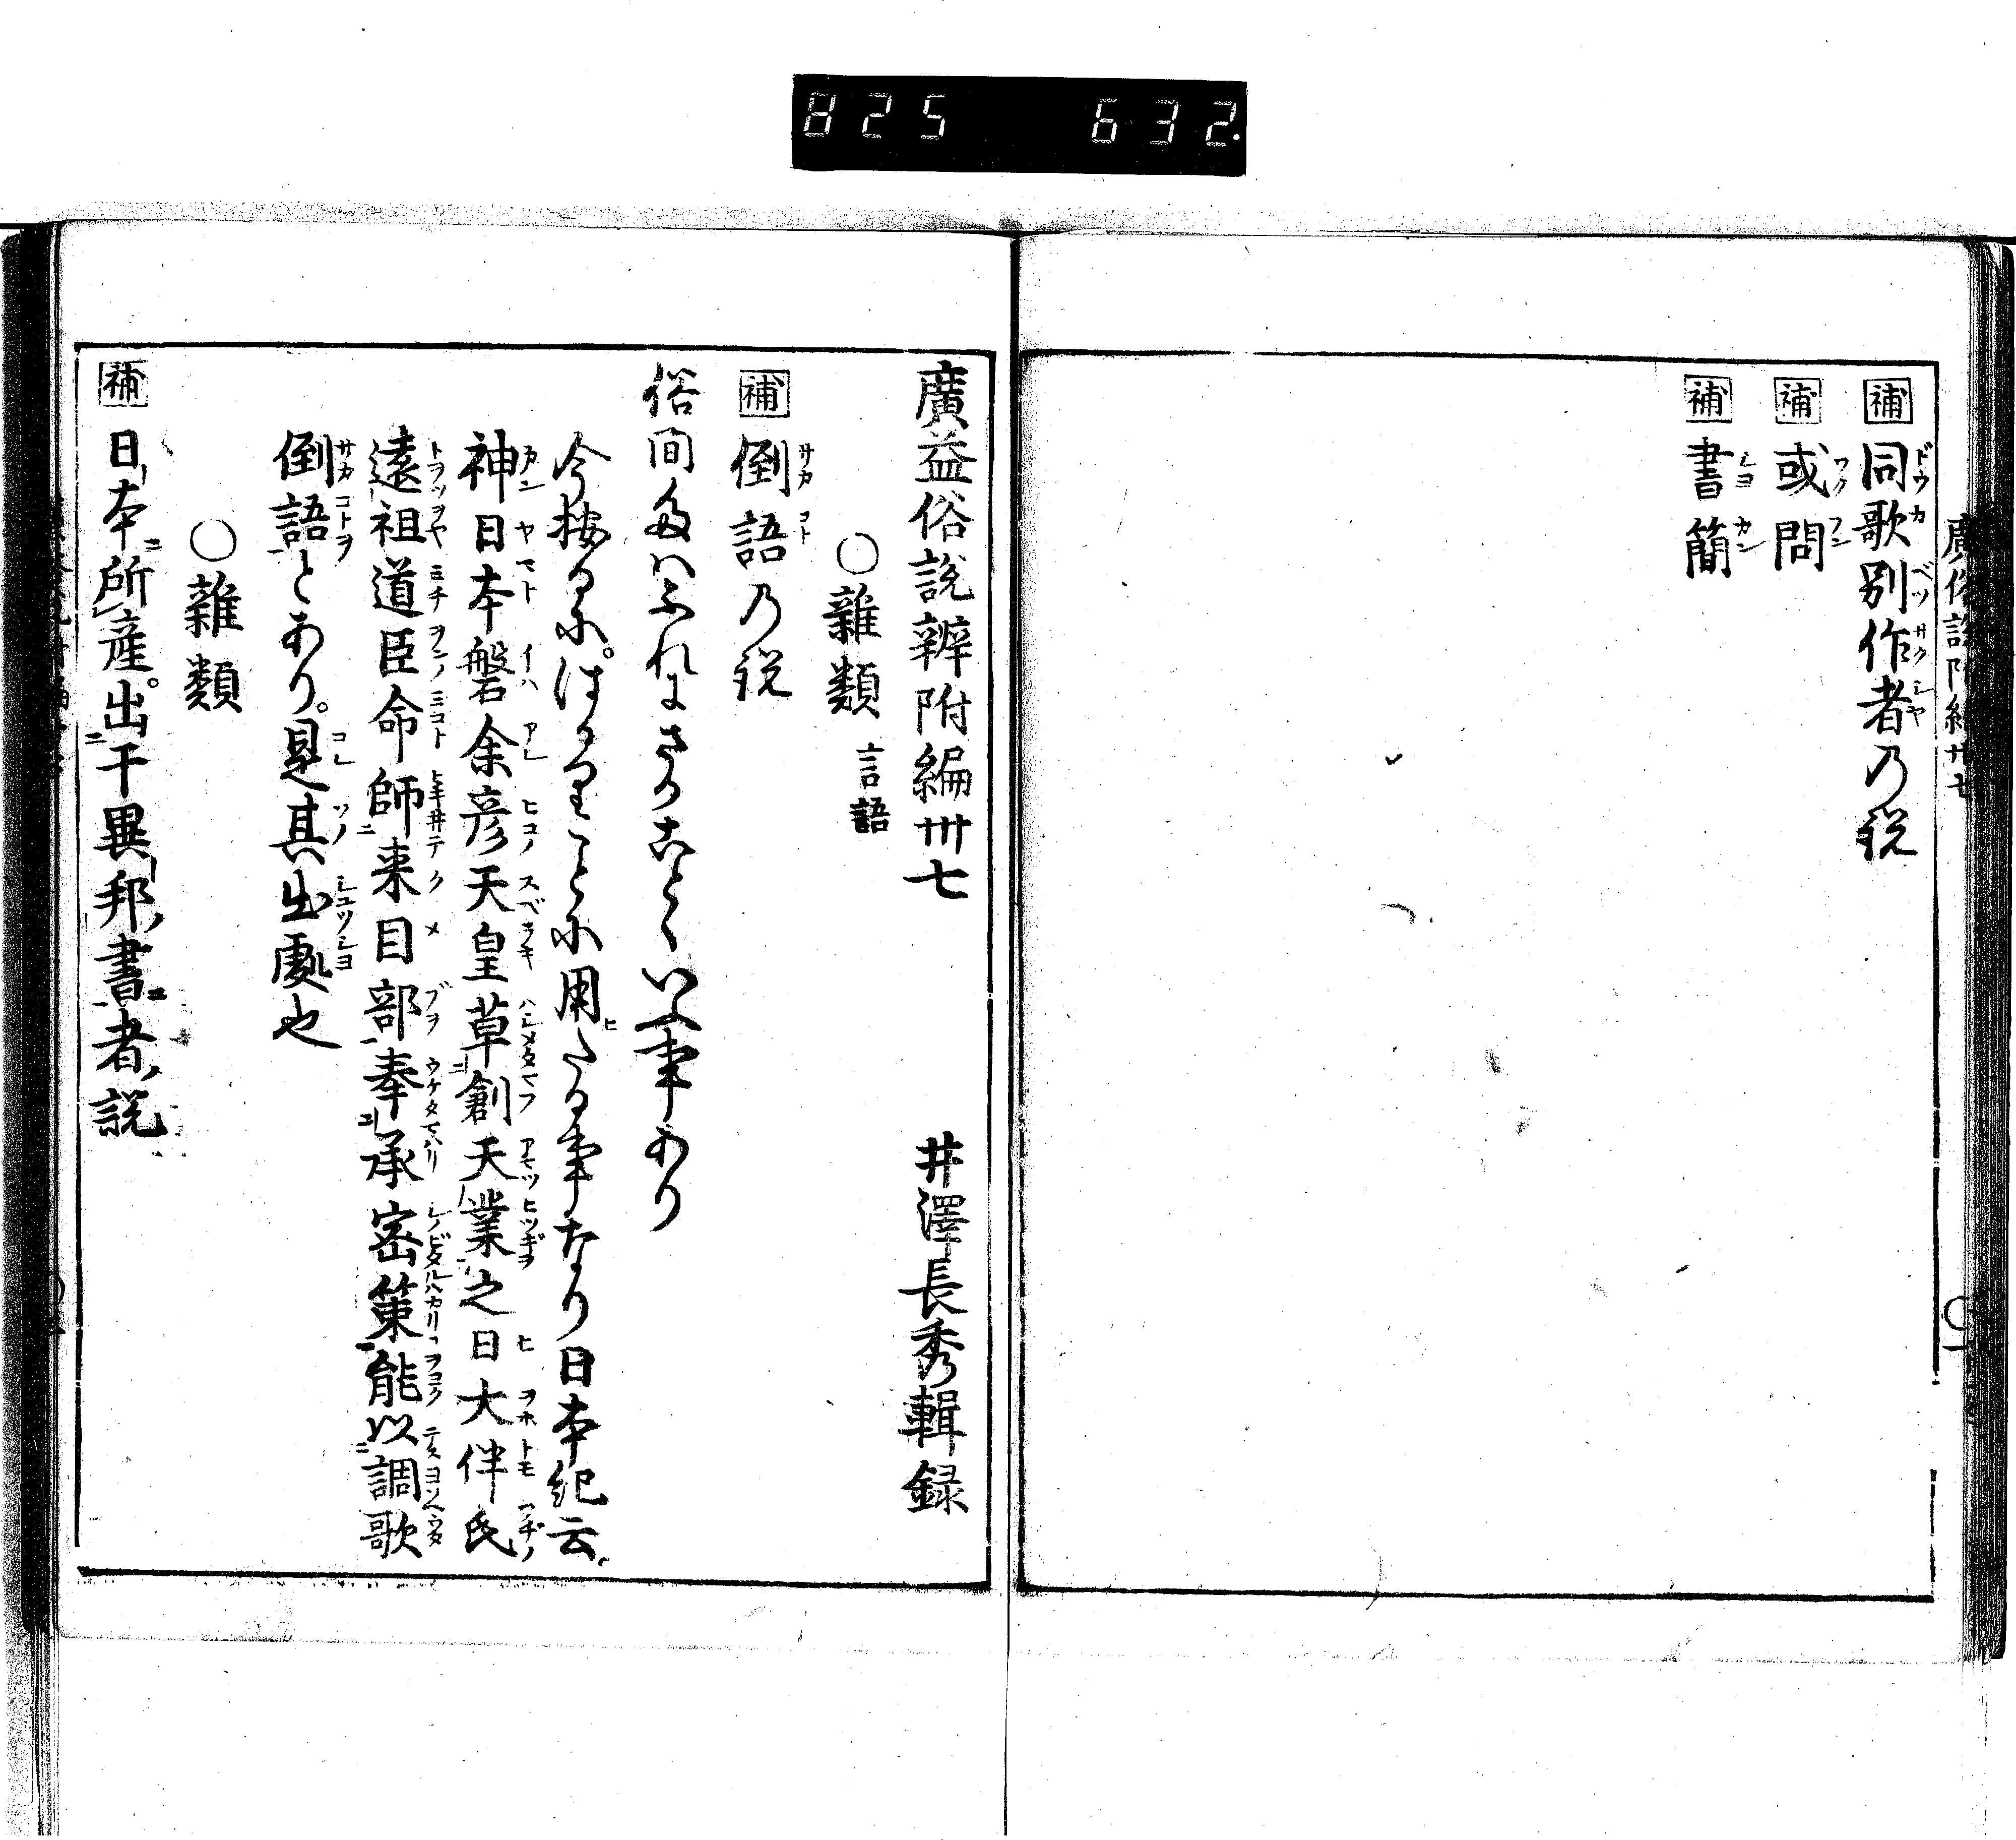 825 632.
廣俗説附編卅七
補 同歌別作者乃説
補 或問
補 書簡
廣益俗説辨附編卅七 井澤長秀輯録
○雜類 言語
補 倒語乃説
俗間たはふれにさかさことといふ事あり
今按るに。はかりことに用ひたる事なり日本紀云
神日本磐余彦天皇草創天業之日大伴氏
遠祖道臣命師来目部奉承密策能以諷歌
倒語とあり。是其出處也
○雜類
補 日本所産。出于異邦書者説